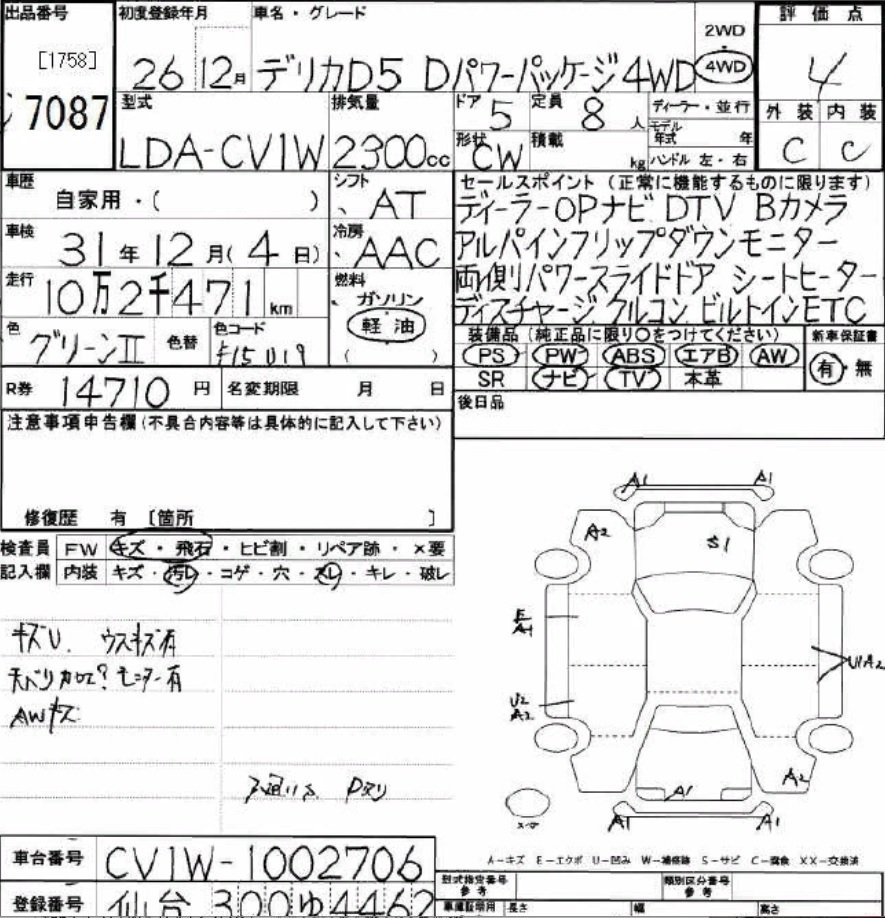 出品番号 初度登録年月 車名・グレード 評価点
[1758] 26 12月 デリカD5 Dパワーパッケージ4WD 2WD 4WD 4
7087 型式 排気量 ドア 5 定員 8人 ディーラー・並行 外装 内装
LDA-CV1W 2300cc 形状 CW 積載 kg モデル年式 年 C C
ハンドル 左・右
車歴 自家用・( ) シフト AT セールスポイント (正常に機能するものに限ります)
ディーラーOPナビ DTV Bカメラ
車検 31年12月(4日) 冷房 AAC アルパインフリップダウンモニター
走行 10万2千471km 燃料 ガソリン 両側パワースライドドア シートヒーター
軽油 ディスチャージ クルコン ビルトインETC
( )
色 グリーンII 色替 色コード 装備品 (純正品に限り○をつけてください) 新車保証書
PS PW ABS エアB AW 有・無
R券 14710円 名変期限 月 日 SR ナビ TV 本革
後日品
注意事項申告欄(不具合内容等は具体的に記入して下さい)
修復歴 有 [箇所 ]
検査員 FW キズ・飛石・ヒビ割・リペア跡・×要
記入欄 内装 キズ・汚レ・コゲ・穴・スレ・キレ・破レ
A1 A1
A2
S1
E
A1
U1A2
U2
A2
A2
A1
A1 A1
キズU. ウスキズ有
モニター有
AWキズ
A-キズ E-エクボ U-凹み W-補修跡 S-サビ C-腐食 XX-交換済
車台番号 CV1W-1002706
型式指定番号 参考 類別区分番号 参考
登録番号 仙台 300 ゆ 4462 車庫証明用 長さ 幅 高さ